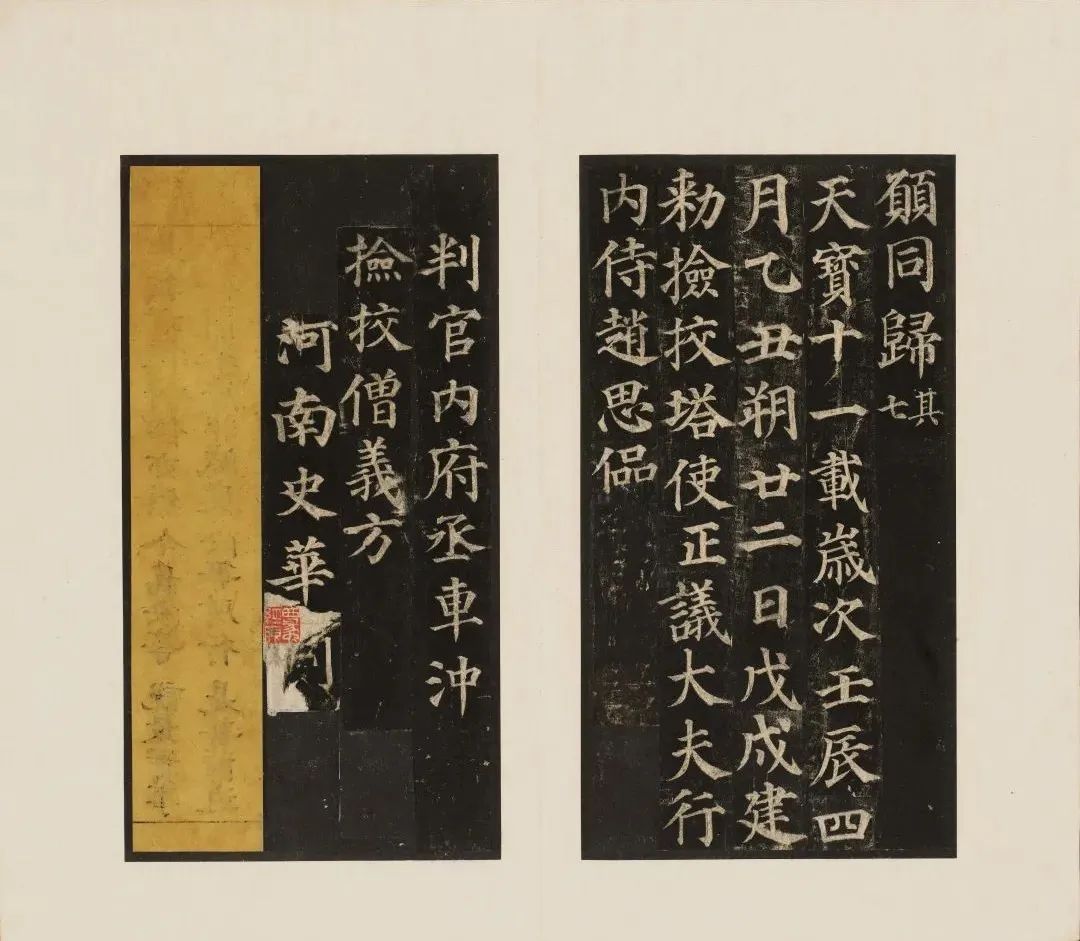 願同歸其七
天寶十一載歲次壬辰四
月乙丑朔廿二日戊戌建
勑撿挍塔使正議大夫行
内侍趙思侃
判官内府丞車沖
撿挍僧義方
河南史華